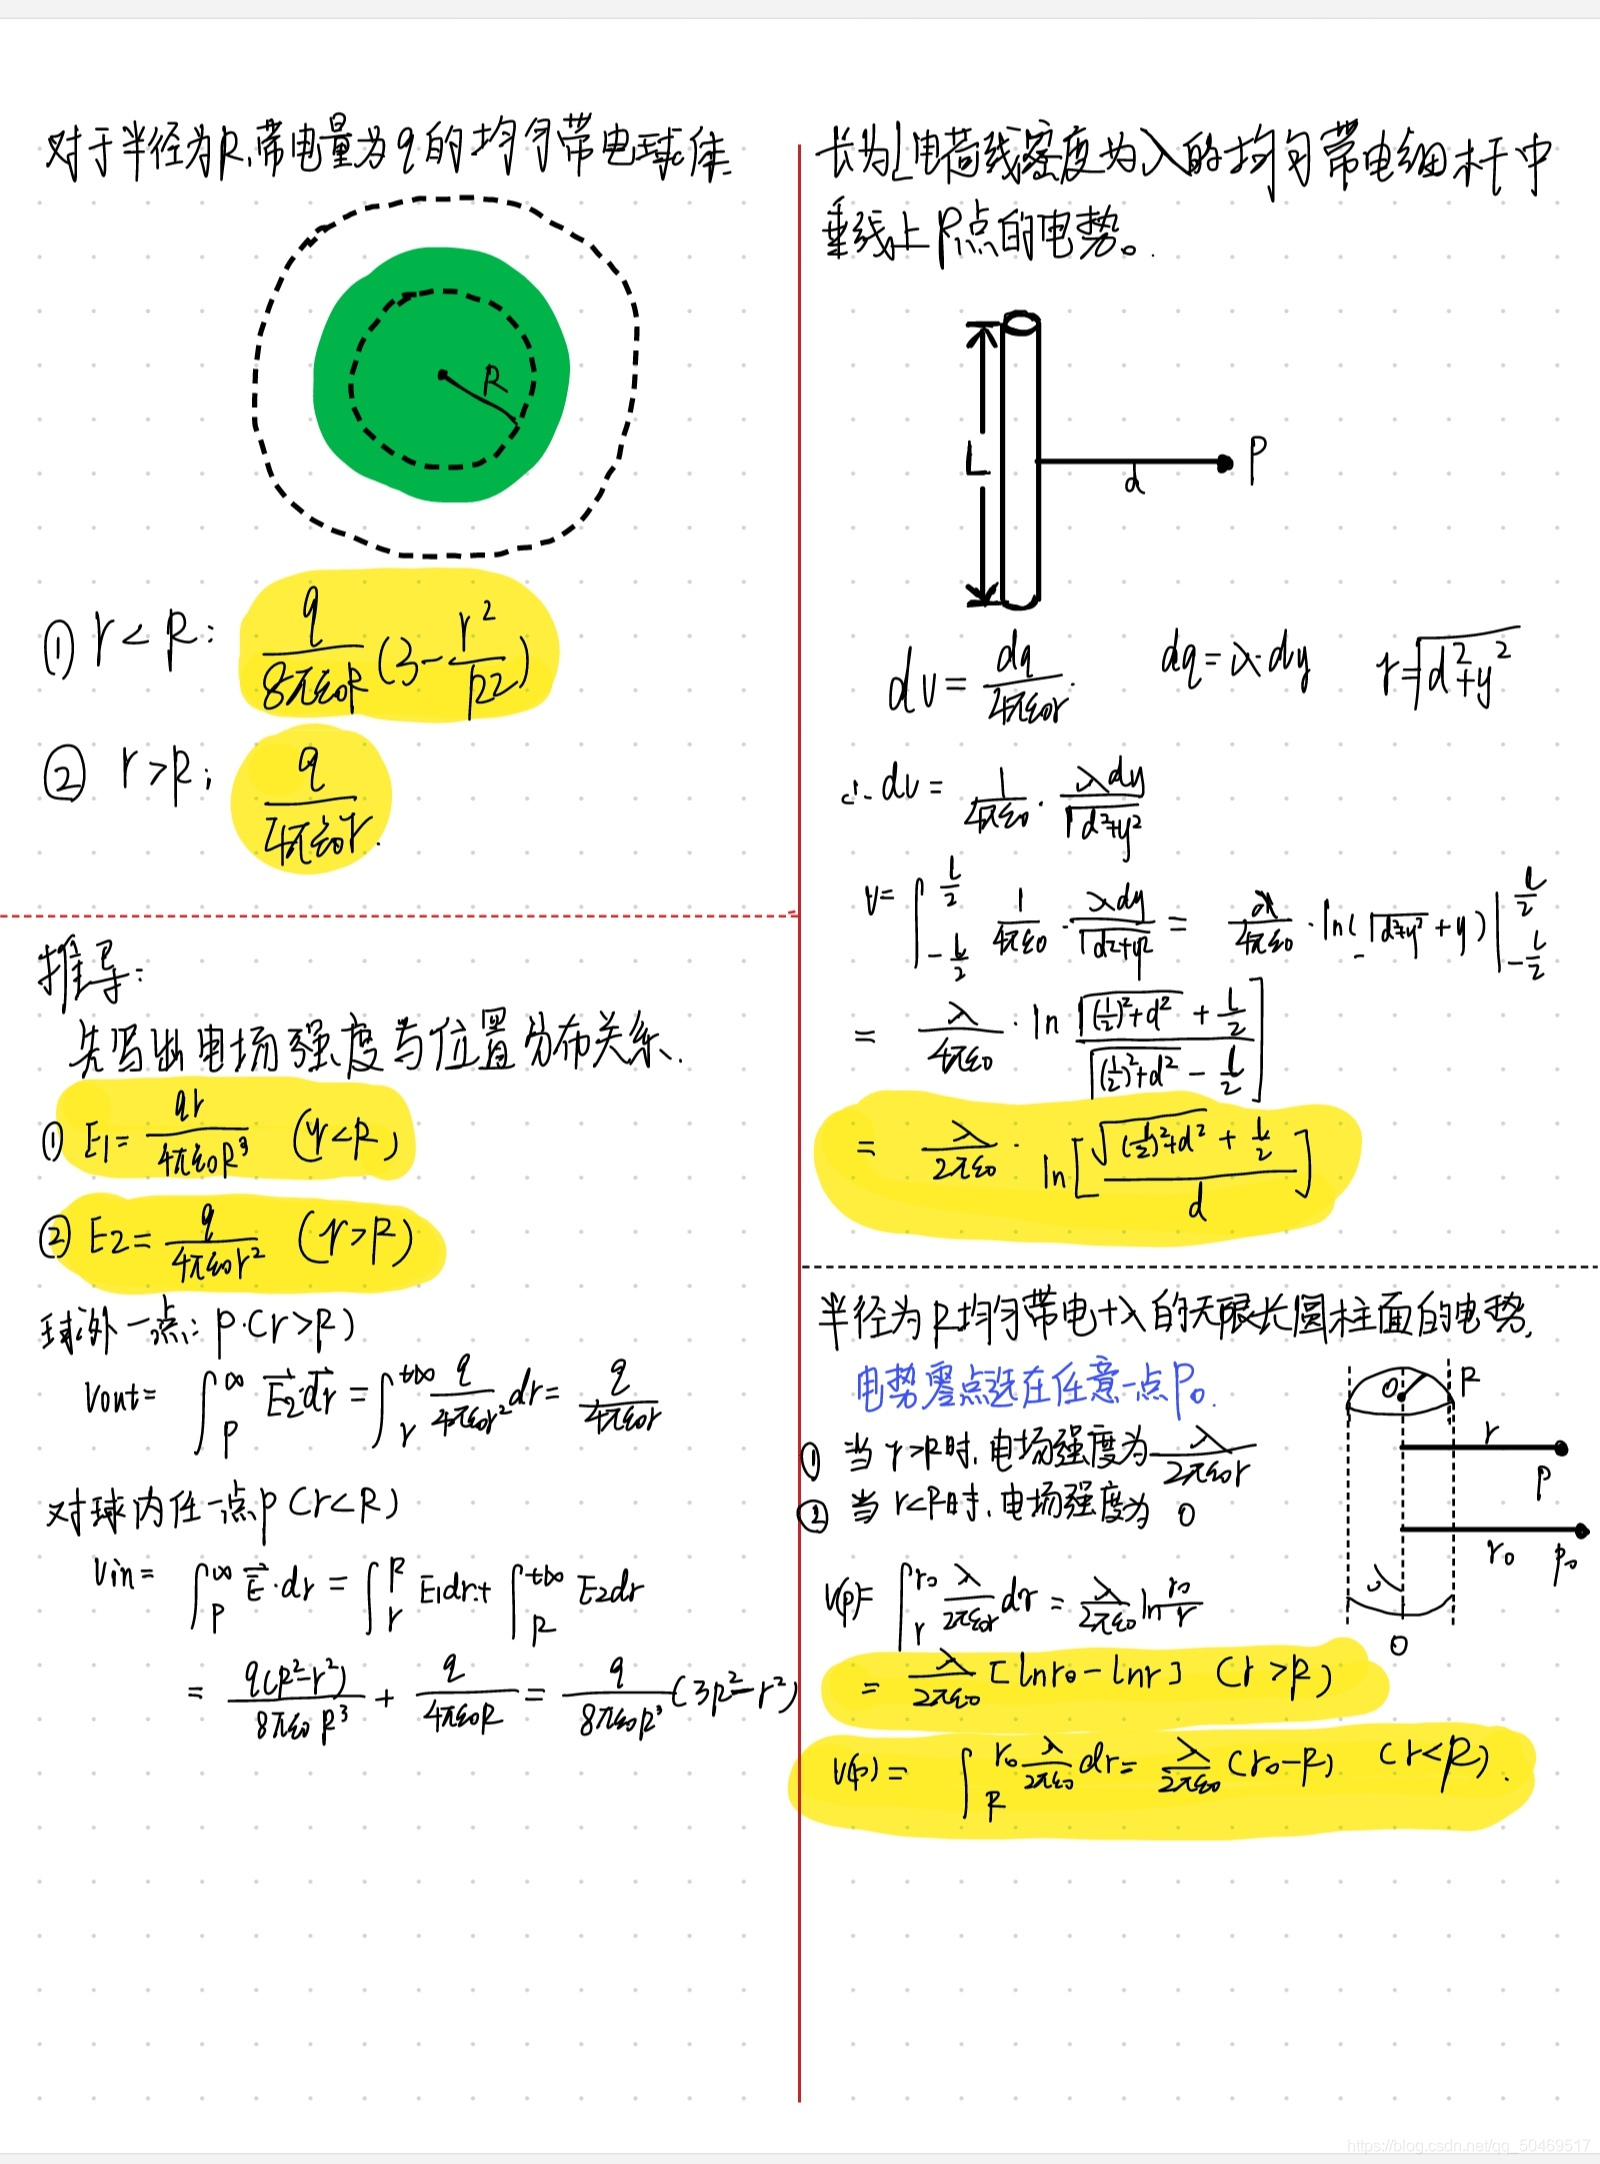 对于半径为R,带电量为q的均匀带电球体
R
① r < R: q/(8πε0R) (3 - r²/R²)
② r > R; q/(4πε0r).
推导:
先写出电场强度与位置分布关系.
① E1 = qr/(4πε0R³) (r<R)
② E2 = q/(4πε0r²) (r>R)
球外一点: P.(r>R)
Vout = ∫_P^∞ E2·dr = ∫_r^{+∞} q/(4πε0r²) dr = q/(4πε0r)
对球内任一点P (r<R)
Vin = ∫_P^∞ E·dr = ∫_r^R E1dr + ∫_R^{+∞} E2dr
= q(R²-r²)/(8πε0R³) + q/(4πε0R) = q/(8πε0R³) (3R²-r²)
长为L电荷线密度为λ的均匀带电细杆中
垂线上P点的电势。
L
d
P
dv = dq/(4πε0r) dq = λ·dy r = √(d²+y²)
∴ dv = 1/(4πε0) · λdy/√(d²+y²)
V = ∫_{-L/2}^{L/2} 1/(4πε0) · λdy/√(d²+y²) = λ/(4πε0) · ln(√(d²+y²) + y) |_{-L/2}^{L/2}
= λ/(4πε0) · ln [√((L/2)²+d²) + L/2]/[√((L/2)²+d²) - L/2]
= λ/(2πε0) · ln[(√((L/2)²+d²) + L/2)/d]
半径为R均匀带电+λ的无限长圆柱面的电势,
电势零点选在任意一点P0.
O R
r
P
r0 P0
λ
O
① 当r>R时,电场强度为 λ/(2πε0r)
② 当r<R时,电场强度为 0
V(p) = ∫_r^{r0} λ/(2πε0r) dr = λ/(2πε0) ln r0/r
= λ/(2πε0) [lnr0 - lnr] (r>R)
V(p) = ∫_R^{r0} λ/(2πε0) dr = λ/(2πε0) (r0-R) (r<R).
https://blog.csdn.net/qq_50469517